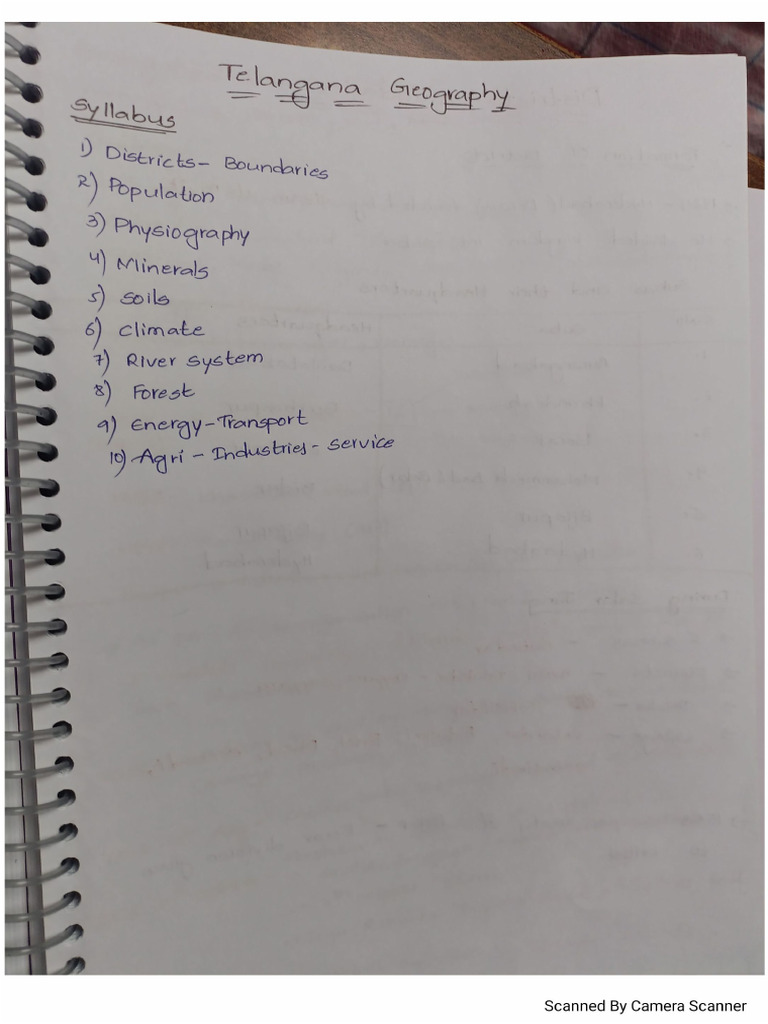 Telangana Geography
Syllabus
1) Districts- Boundaries
2) Population
3) Physiography
4) Minerals
5) Soils
6) Climate
7) River system
8) Forest
9) Energy-Transport
10) Agri - Industries- service
Scanned By Camera Scanner